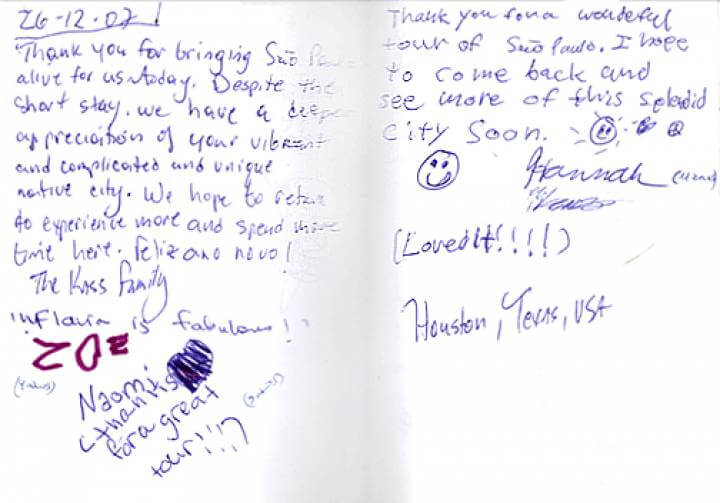 26-12-07!
Thank you for bringing São Paulo
alive for us today. Despite the
short stay, we have a deeper
appreciation of your vibrant
and complicated and unique
native city. We hope to return
to experience more and spend more
time here. Feliz ano novo!
The Kass family
"Flavia is fabulous!"
ZOE
Naomi
thanks
for a great
tour!!!
Thank you for a wonderful
tour of São Paulo. I hope
to come back and
see more of this splendid
city soon.
Hannah
(Loved It!!!!)
Houston, Texas, USA